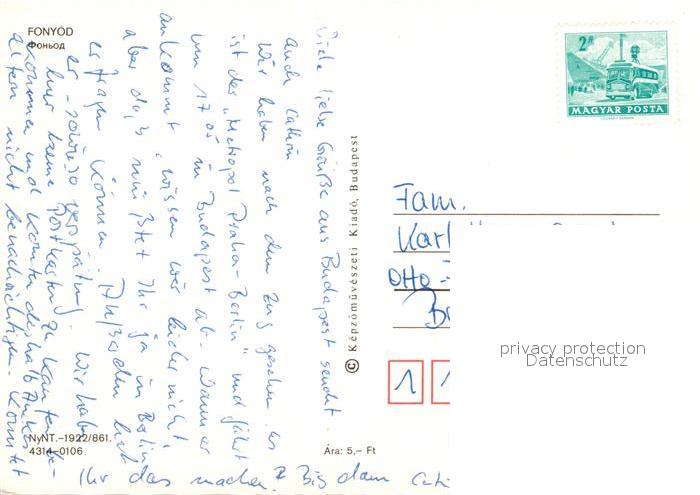 FONYÓD
Фоньод
Viele liebe Grüße aus Budapest sendet
auch Catrin
Wir haben nach dem Zug gesehen. Es
ist der „Metropol Praha-Berlin" und fährt
um 17.05 in Budapest ab. Wann er
ankommt, wissen wir leider nicht,
aber das müßtet Ihr ja in Berlin
erfragen können. Außerdem hat
er sowieso Verspätung. Wir haben
hier keine Postkarten zu kaufen be-
kommen und konnten deshalb
eltern nicht benachrichtigen. Könntet
Ihr das machen? Bis dann
NyNT.-1922/861.
4314-0106
Ára: 5,- Ft
© Képzőművészeti Kiadó, Budapest
2 Ft
MAGYAR POSTA
Fam.
Karl
Otto-
1
privacy protection
Datenschutz